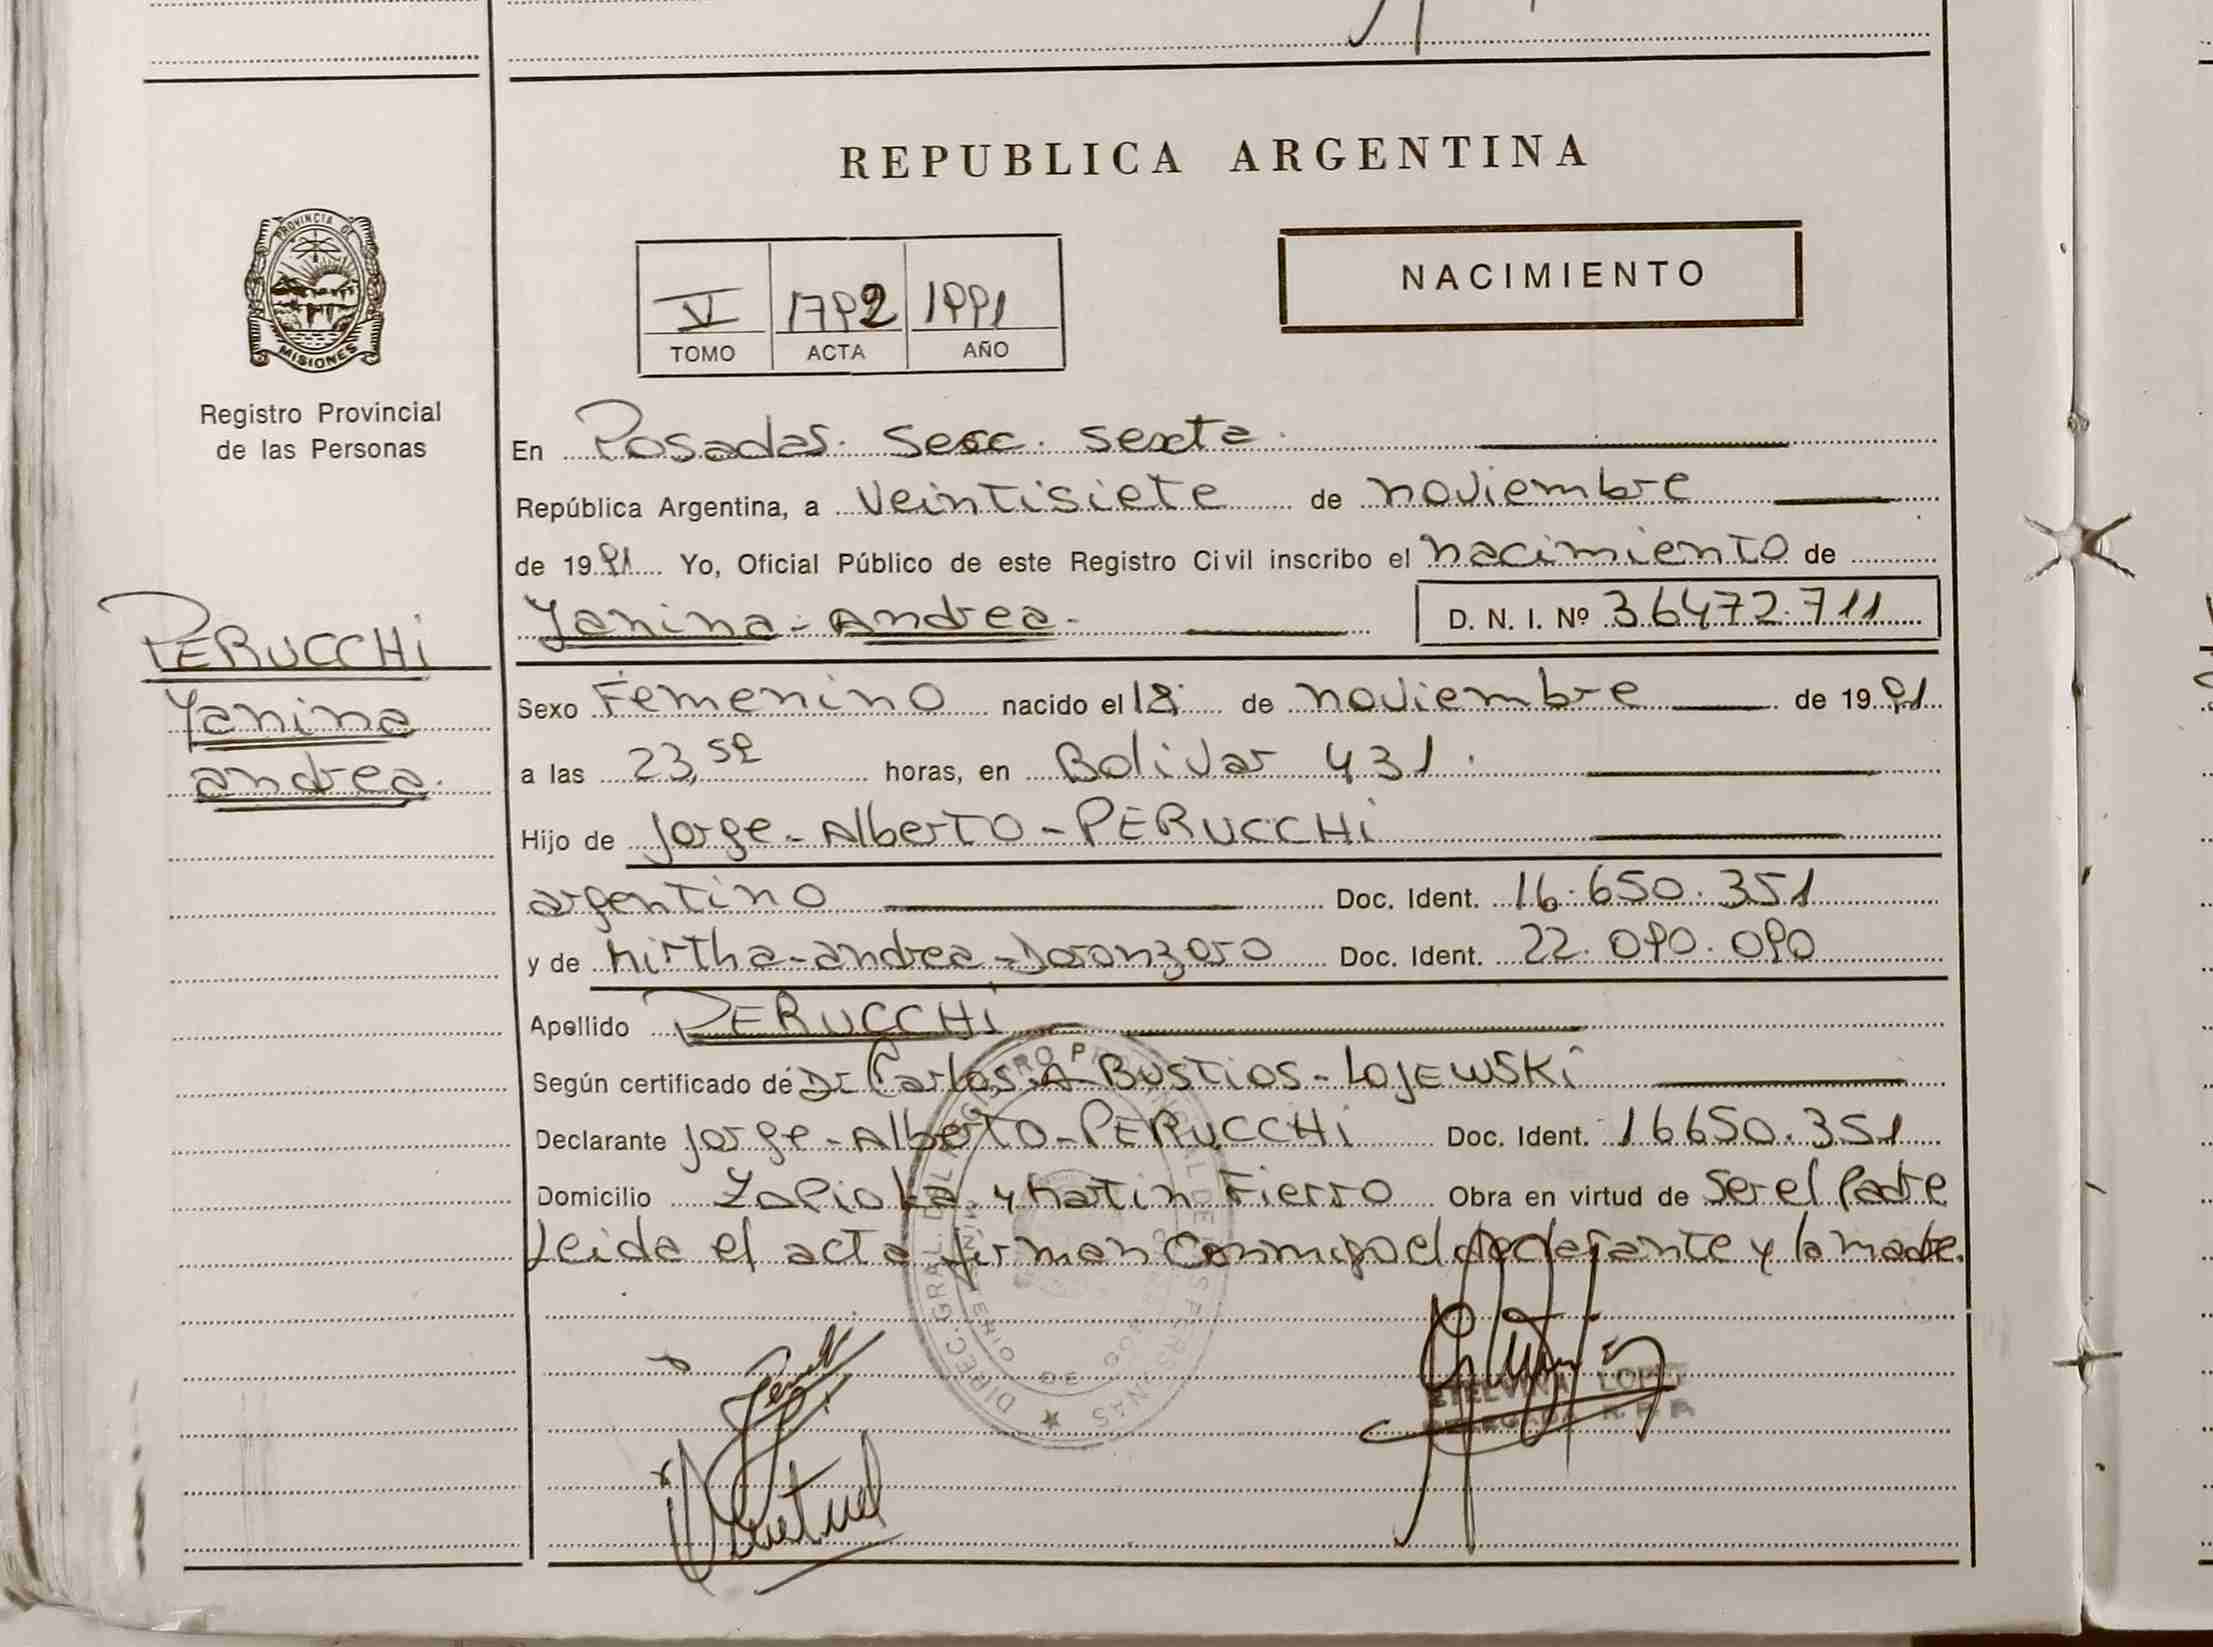 REPUBLICA ARGENTINA
NACIMIENTO
VI 1792 1991
TOMO ACTA AÑO
PROVINCIA DE
MISIONES
Registro Provincial
de las Personas
En Posadas. Secc. Sexta.
República Argentina, a Veintisiete de noviembre
de 1991 Yo, Oficial Público de este Registro Civil inscribo el nacimiento de
Yanina - Andrea. D. N. I. Nº 36472.711
PERUCCHi
Yanina
andrea.
Sexo Femenino nacido el 18 de noviembre de 1991
a las 23,59 horas, en Bolivar 431.
Hijo de Jorge - Alberto - PERUCCHi
argentino Doc. Ident. 16.650.351
y de Mirtha - andrea - Doronzoro Doc. Ident. 22.090.090
Apellido PERUCCHi
Según certificado de Dr Carlos A Bustios - LOJEWSKi
Declarante Jorge - Alberto - PERUCCHi Doc. Ident. 16650.351
Domicilio Zapiola y Martin Fierro Obra en virtud de Ser el Padre
Leida el acta firman Conmigo el declarante y la madre.
DIREC. GRAL. DEL REGISTRO PROVINCIAL DE LAS PERSONAS
ETELVINA LOPEZ
DELEGADA R. P. P.